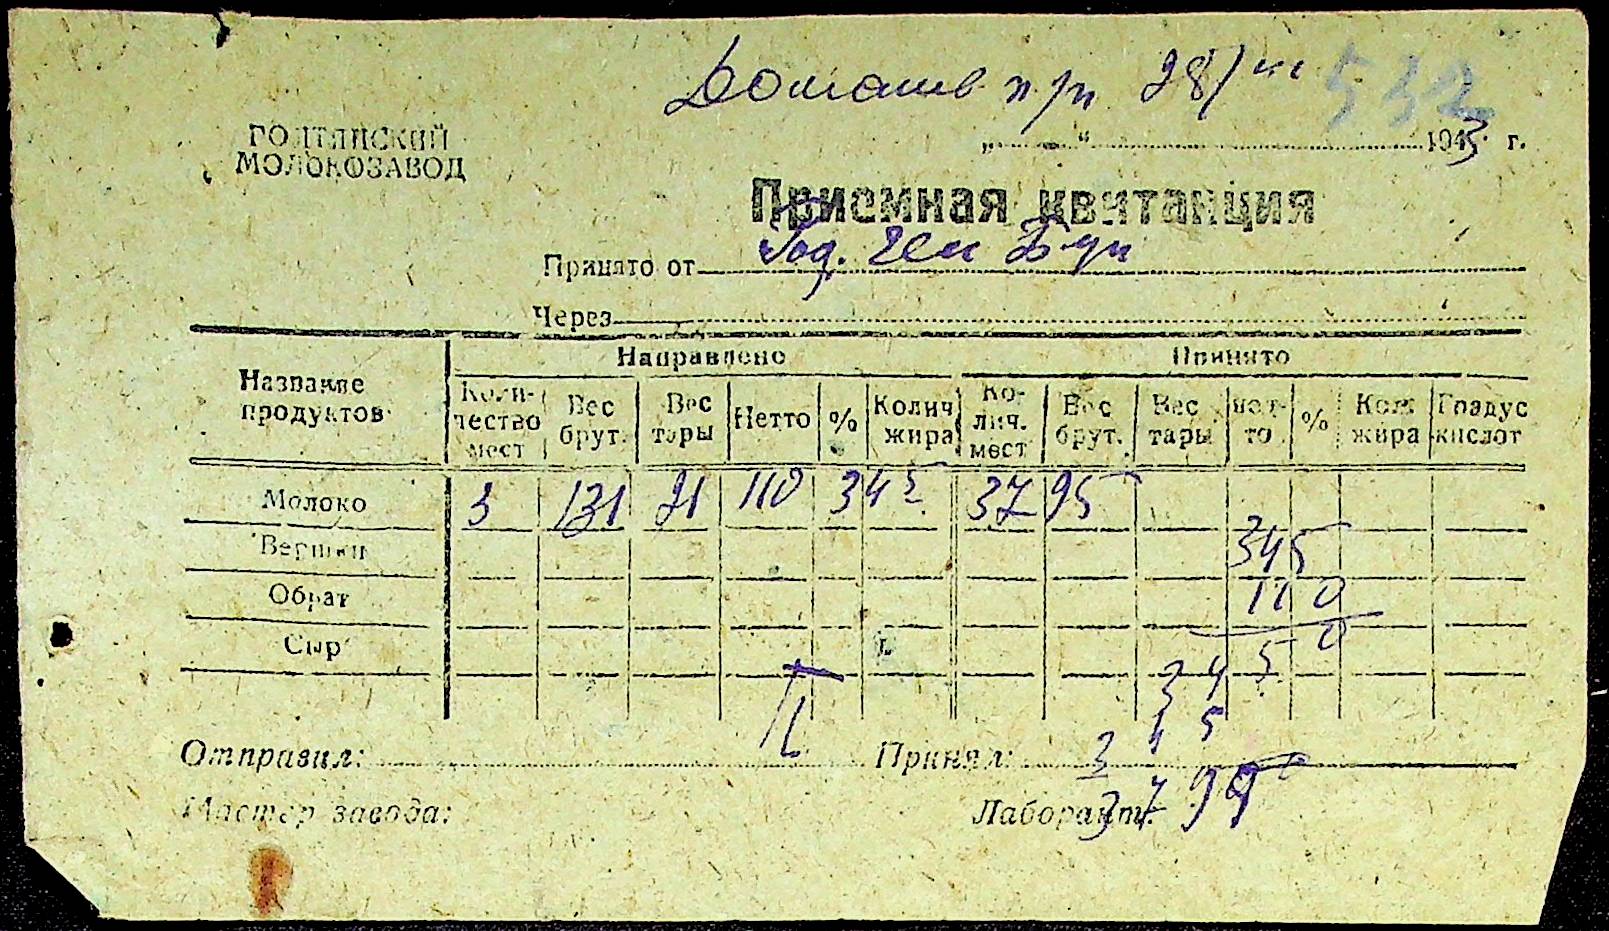 28/III 532
ГОЛТЯНСКИЙ
МОЛОКОЗАВОД
„ “ 1943 г.
Приемная квитанция
Принято от
Через
Направлено Принято
Название продуктов Количество мест Вес брут. Вес тары Нетто % Колич жира Колич. мест Вес брут. Вес тары нетто % Колич жира Градус кислот
Молоко 3 131 21 110 34 5 37 95
Вершки 345
Обрат 110
Сыр 0
345
345
Отправил: Принял:
3795
Мастер завода: Лаборант: